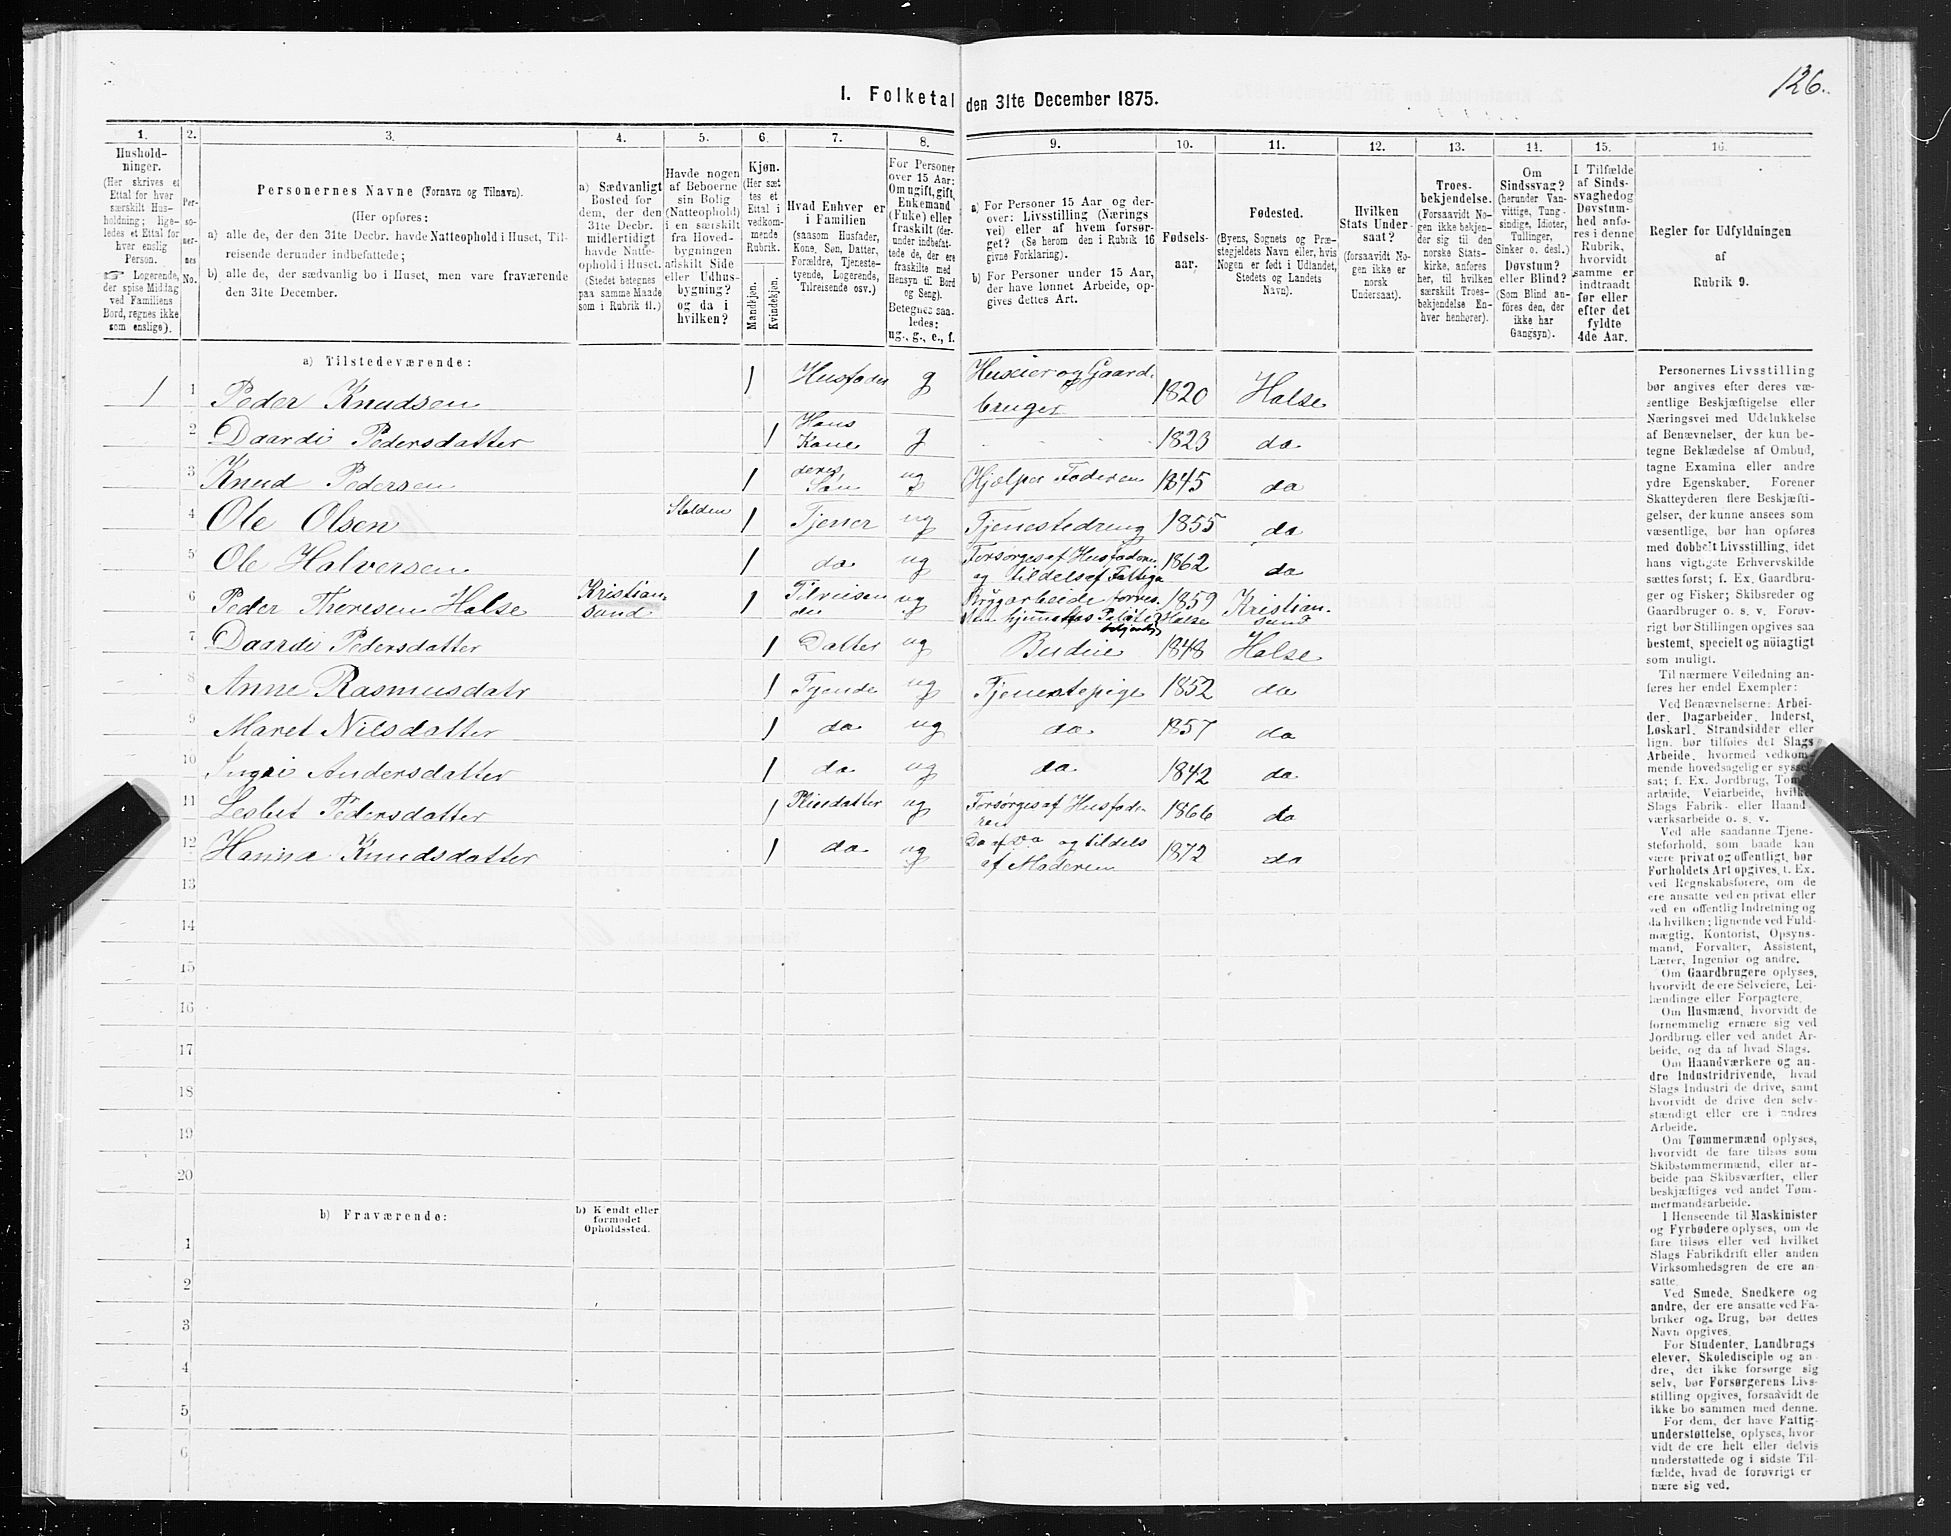 126.
I. Folketal den 31te December 1875.
1. 2. 3. 4. 5. 6. 7. 8. 9. 10. 11. 12. 13. 14. 15. 16.
Hushold-
ninger.
(Her skrives et
Ettal for hver
særskilt Hus-
holdning; lige-
ledes et Ettal for
hver enslig
Person.
☞ Logerende,
der spise Middag
ved Familiens
Bord, regnes ikke
som enslige).
Per-
so-
ner-
nes
No.
Personernes Navne (Fornavn og Tilnavn).
(Her opføres:
a) alle de, der den 31te Decbr. havde Natteophold i Huset, Til-
reisende derunder indbefattede;
b) alle de, der sædvanlig bo i Huset, men vare fraværende
den 31te December.
a) Sædvanligt
Bosted for
dem, der den
31te Decbr.
midlertidigt
havde Natte-
ophold i Huset.
(Stedet betegnes
paa samme Maade
som i Rubrik 11.)
Havde nogen
af Beboerne
sin Bolig
(Natteophold)
i en særskilt
fra Hoved-
bygningen
afskilt Side
eller Udhus-
bygning?
og da i
hvilken?
Kjøn.
(Her sæt-
tes et
Ettal i
vedkom-
mende
Rubrik.
Mandkjøn.
Kvindekjøn.
Hvad Enhver er
i Familien
(saasom Husfader,
Kone, Søn, Datter,
Forældre, Tjeneste-
tyende, Logerende,
Tilreisende osv.)
For Personer
over 15 Aar:
Om ugift, gift,
Enkemand
(Enke) eller
fraskilt (der-
under indbefat-
tede de, der ere
fraskilte med
Hensyn til Bord
og Seng).
Betegnes saa-
ledes:
ug., g., e., f.
a) For Personer 15 Aar og der-
over: Livsstilling (Nærings
vei) eller af hvem forsør-
get? (Se herom den i Rubrik 16
givne Forklaring).
b) For Personer under 15 Aar,
der have lønnet Arbeide, op-
gives dettes Art.
Fødsels-
aar.
Fødested.
(Byens, Sognets og Præ-
stegjeldets Navn eller, hvis
Nogen er født i Udlandet,
Stedets og Landets
Navn).
Hvilken
Stats Under
saat?
(forsaavidt No-
gen ikke er
norsk
Undersaat).
Troes-
bekjendelse.
(Forsaavidt No-
gen ikke bekjen-
der sig til den
norske Stats-
kirke, anføres
her, til hvilken
særskilt Troes-
bekjendelse En-
hver henhører).
Om
Sindssvag?
(herunder Van-
vittige, Tung-
sindige, Idioter,
Tullinger,
Sinker o. desl.)
Døvstum?
eller Blind?
(Som Blind an-
føres den, der
ikke har
Gangsyn).
I Tilfælde
af Sinds-
svaghed og
Døvstum-
hed anfø-
res i denne
Rubrik,
hvorvidt
samme er
indtraadt
før eller
efter det
fyldte
4de Aar.
Regler for Udfyldningen
af
Rubrik 9.
a) Tilstedeværende:
1 1 Peder Knudsen 1 Husfader g Huseier og Gaard-
bruger 1820 Halse
2 Daardi Pedersdatter 1 Hans
Kone g 1823 do
3 Knud Pedersen 1 deres
Søn ug Hjælper Faderen 1845 do
4 Ole Olsen Stalden 1 Tjener ug Tjenestedreng 1855 do
5 Ole Halversen 1 do ug Forsørges af Husfaderen
og tildels af Fattiga 1862 do
6 Peder Theresen Halse Kristian-
sund 1 Tilreisen
de ug 1859 Kristian-
sund
Halse
7 Daardi Pedersdatter 1 Datter ug Budeie 1848 Halse
8 Anne Rasmusdatr 1 Tyende ug Tjenestepige 1852 do
9 Maret Nilsdatter 1 do ug do 1857 do
10 Ingri Andersdatter 1 do ug do 1842 do
11 Lesbet Pedersdatter 1 Pleiedatter ug Forsørges af Husfade-
ren 1866 do
12 Hanna Knudsdatter 1 do ug Do af Do og tildels
af Moderen 1872 do
13
14
15
16
17
18
19
20
b) Fraværende:
b) Kjendt eller
formodet
Opholdssted.
1
2
3
4
5
6
Personernes Livsstilling
bør angives efter deres væ-
sentlige Beskjæftigelse eller
Næringsvei med Udelukkelse
af Benævnelser, der kun be-
tegne Beklædelse af Ombud,
tagne Examina eller andre
ydre Egenskaber. Forener
Skatteyderen flere Beskjæfti-
gelser, der kunne ansees som
væsentlige, bør han opføres
med dobbelt Livsstilling, idet
hans vigtigste Erhvervskilde
sættes først; f. Ex. Gaardbru-
ger og Fisker; Skibsreder og
Gaardbruger o. s. v. Forøv-
rigt bør Stillingen opgives saa
bestemt, specielt og nöiagtigt
som muligt.
Til nærmere Veiledning an-
føres her endel Exempler:
Ved Benævnelserne: Arbei-
der, Dagarbeider, Inderst,
Løskarl, Strandsidder eller
lign. bør tilføies det Slags
Arbeide, hvormed vedkom-
mende hovedsagelig er syssel-
sat; f. Ex. Jordbrug, Tom-
arbeide, Veiarbeide, hvilke
Slags Fabrik- eller Haand-
værksarbeide o. s. v.
Ved alle saadanne Tjene-
steforhold, som baade kan
være privat og offentligt, bør
Forholdets Art opgives, t. Ex.
ved Regnskabsførere, om de
ere ansatte ved en privat eller
ved en offentlig Indretning og
da hvilken; lignende ved Fuld-
mægtig, Kontorist, Opsyns-
mand, Forvalter, Assistent,
Lærer, Ingeniør og andre.
Om Gaardbrugere oplyses,
hvorvidt de ere Selveiere, Lei-
lændinge eller Forpagtere.
Om Husmænd, hvorvidt de
fornemmelig ernære sig ved
Jordbrug, eller ved andet Ar-
beide, og da af hvad Slags.
Om Haandværkere og an-
dre Industridrivende, hvad
Slags Industri de drive, samt
hvorvidt de drive den selv-
stændigt eller ere i andres
Arbeide.
Om Tømmermænd oplyses,
hvorvidt de fare tilsøs som
Skibstømmermænd, eller ar-
beide paa Skibsværfter, eller
beskjæftiges ved andet Tøm-
mermandsarbeide.
I Henseende til Maskinister
og Fyrbødere oplyses, om de
fare tilsøs eller ved hvilket
Slags Fabrikdrift eller anden
Virksomhedsgren de ere an-
satte.
Ved Smede, Snedkere og
andre, der ere ansatte ved Fa-
briker og Brug, bør dettes
Navn opgives.
For Studenter, Landbrugs
elever, Skoledisciple og an-
dre, der ikke forsørge sig
selv, bør Forsørgerens Livs-
stilling opgives, forsaavidt de
ikke bo sammen med denne.
For dem, der have Fattig-
understøttelse, oplyses, hvor-
vidt de ere helt eller delvis
understøttede og i sidste Til-
fælde, hvad de forøvrigt er
nære sig ved.